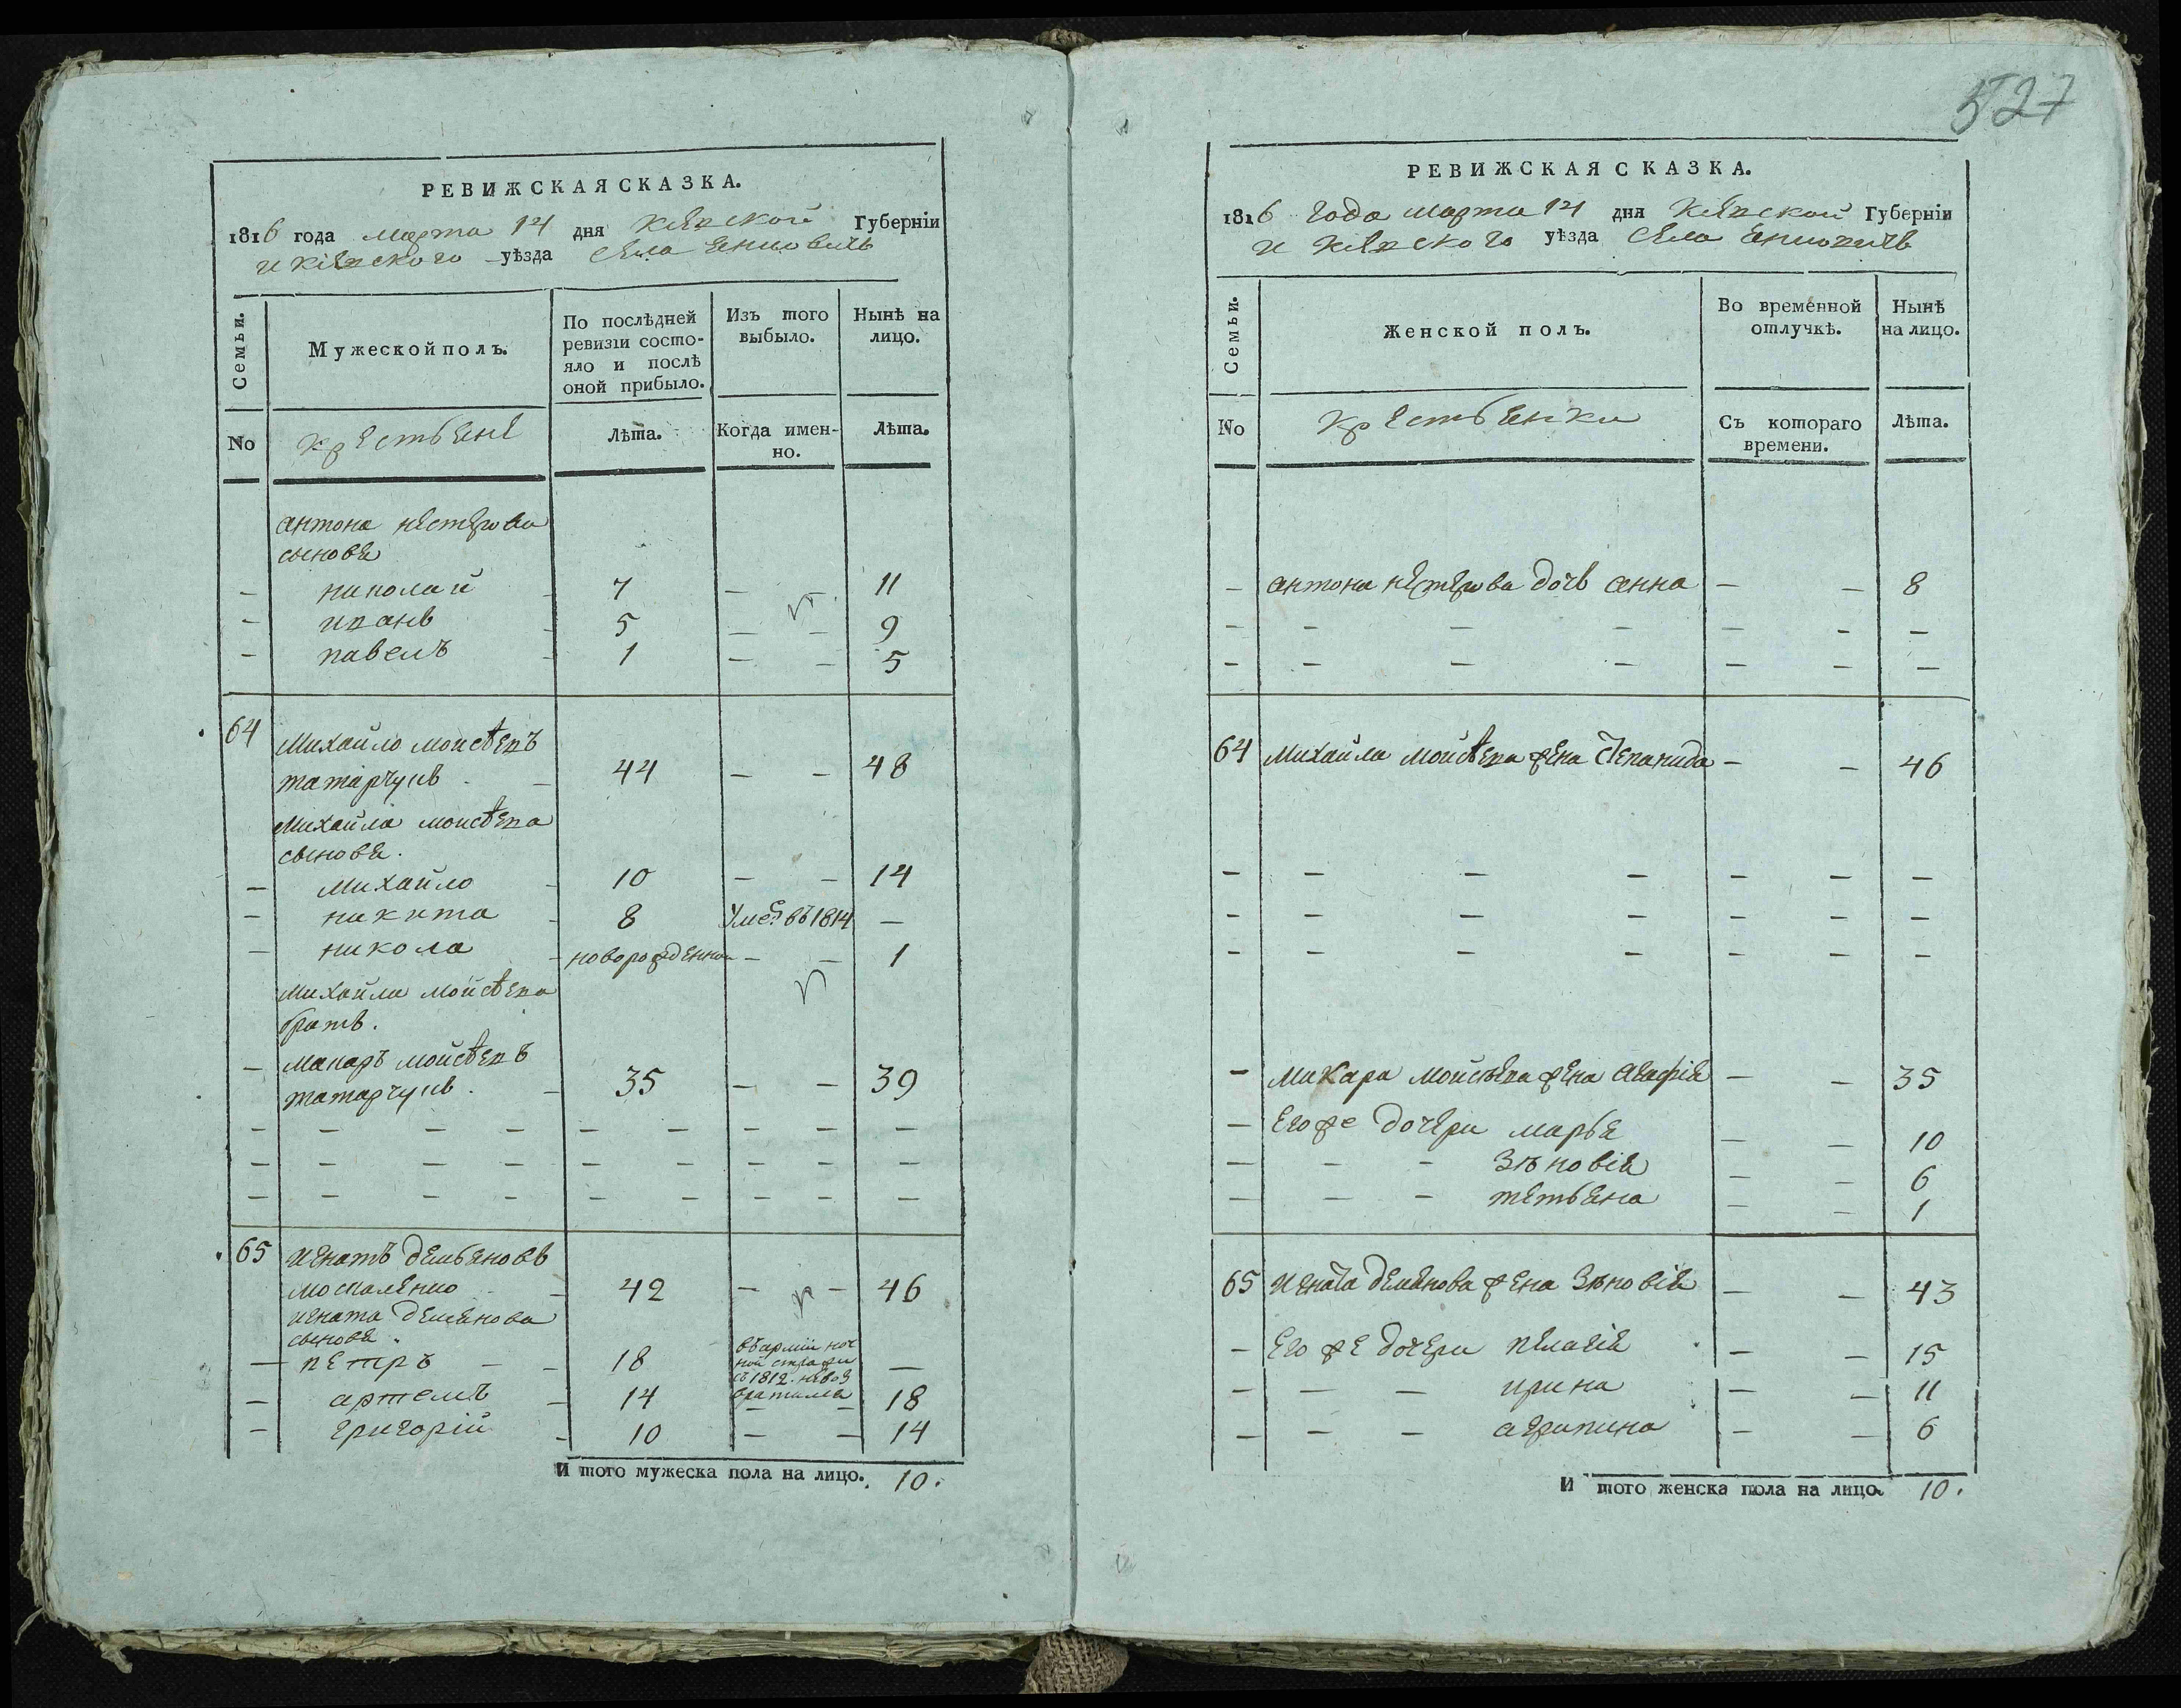 527
РЕВИЖСКАЯ СКАЗКА.
1816 года марта 14 дня Кіевской Губерніи
и Кіевского уѣзда села
Семьи.
Мужеской полъ.
По послѣдней ревизіи состояло и послѣ оной прибыло.
Изъ того выбыло.
Нынѣ на лицо.
No
крестьяне
Лѣта.
Когда именно.
Лѣта.
антона нестерова
сыновя
— николай 7 — 11
— иванъ 5 — — 9
— павелъ 1 — — 5
64 Михайло мойсѣевъ
татарчукъ 44 — — 48
Михайла мойсѣева
сыновя.
— михайло 10 — — 14
— никита 8 Умеръ въ 1814 —
— никола новорожденной — — 1
Михайла мойсѣева
братъ.
— макаръ мойсѣевъ
татарчукъ 35 — — 39
65 игнатъ демьяновъ
москаленко 42 — — 46
игната демянова
сыновя.
— петръ — — 18 въ арміи с 1812. невозвратился —
— артемъ 14 — — 18
— григорій 10 — — 14
И того мужеска пола на лицо. 10.
РЕВИЖСКАЯ СКАЗКА.
1816 года марта 14 дня Кіевской Губерніи
и Кіевского уѣзда села
Семьи.
Женской полъ.
Во временной отлучкѣ.
Нынѣ на лицо.
No
крестьянки
Съ котораго времени.
Лѣта.
— антона нестерова дочь анна — — 8
64 Михайла мойсѣева жена степанида — — 46
— Макара мойсѣева жена агафія — — 35
— Его же дочери марья — — 10
— — — зѣновія — — 6
— — — тетьяна — — 1
65 игната демянова жена зѣновія — — 43
— Его же дочери пелагія — — 15
— — — ирина — — 11
— — — агрипина — — 6
И того женска пола на лицо. 10.